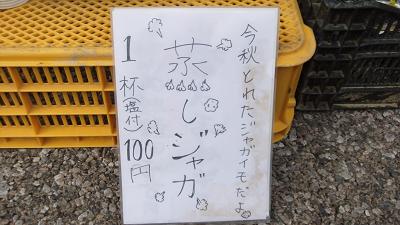 今秋とれたジャガイモだよ
蒸しジャガ
1杯(塩付)100円